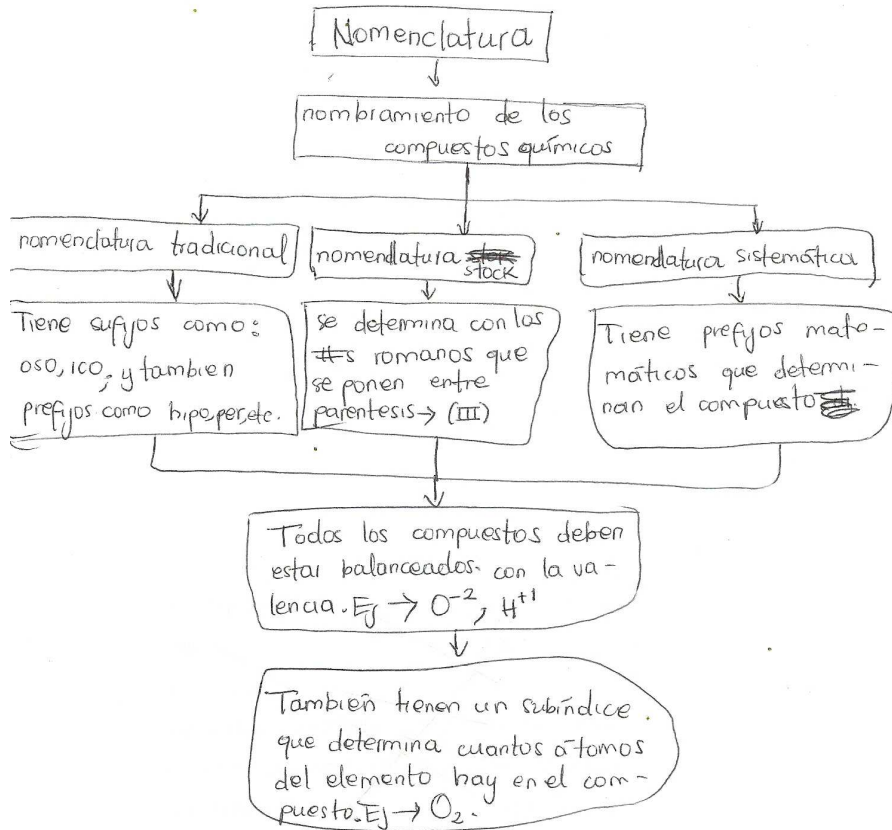 Nomenclatura
nombramiento de los
compuestos químicos
nomenclatura tradicional
Tiene sufijos como:
oso, ico, y tambien
prefijos como hipo, per, etc.
nomenclatura
stock
se determina con los
#s romanos que
se ponen entre
parentesis → (III)
nomenclatura sistemática
Tiene prefijos mate-
máticos que determi-
nan el compuesto
Todos los compuestos deben
estar balanceados. con la va-
lencia. Ej → O⁻², H⁺¹
También tienen un subíndice
que determina cuantos átomos
del elemento hay en el com-
puesto. Ej → O₂.